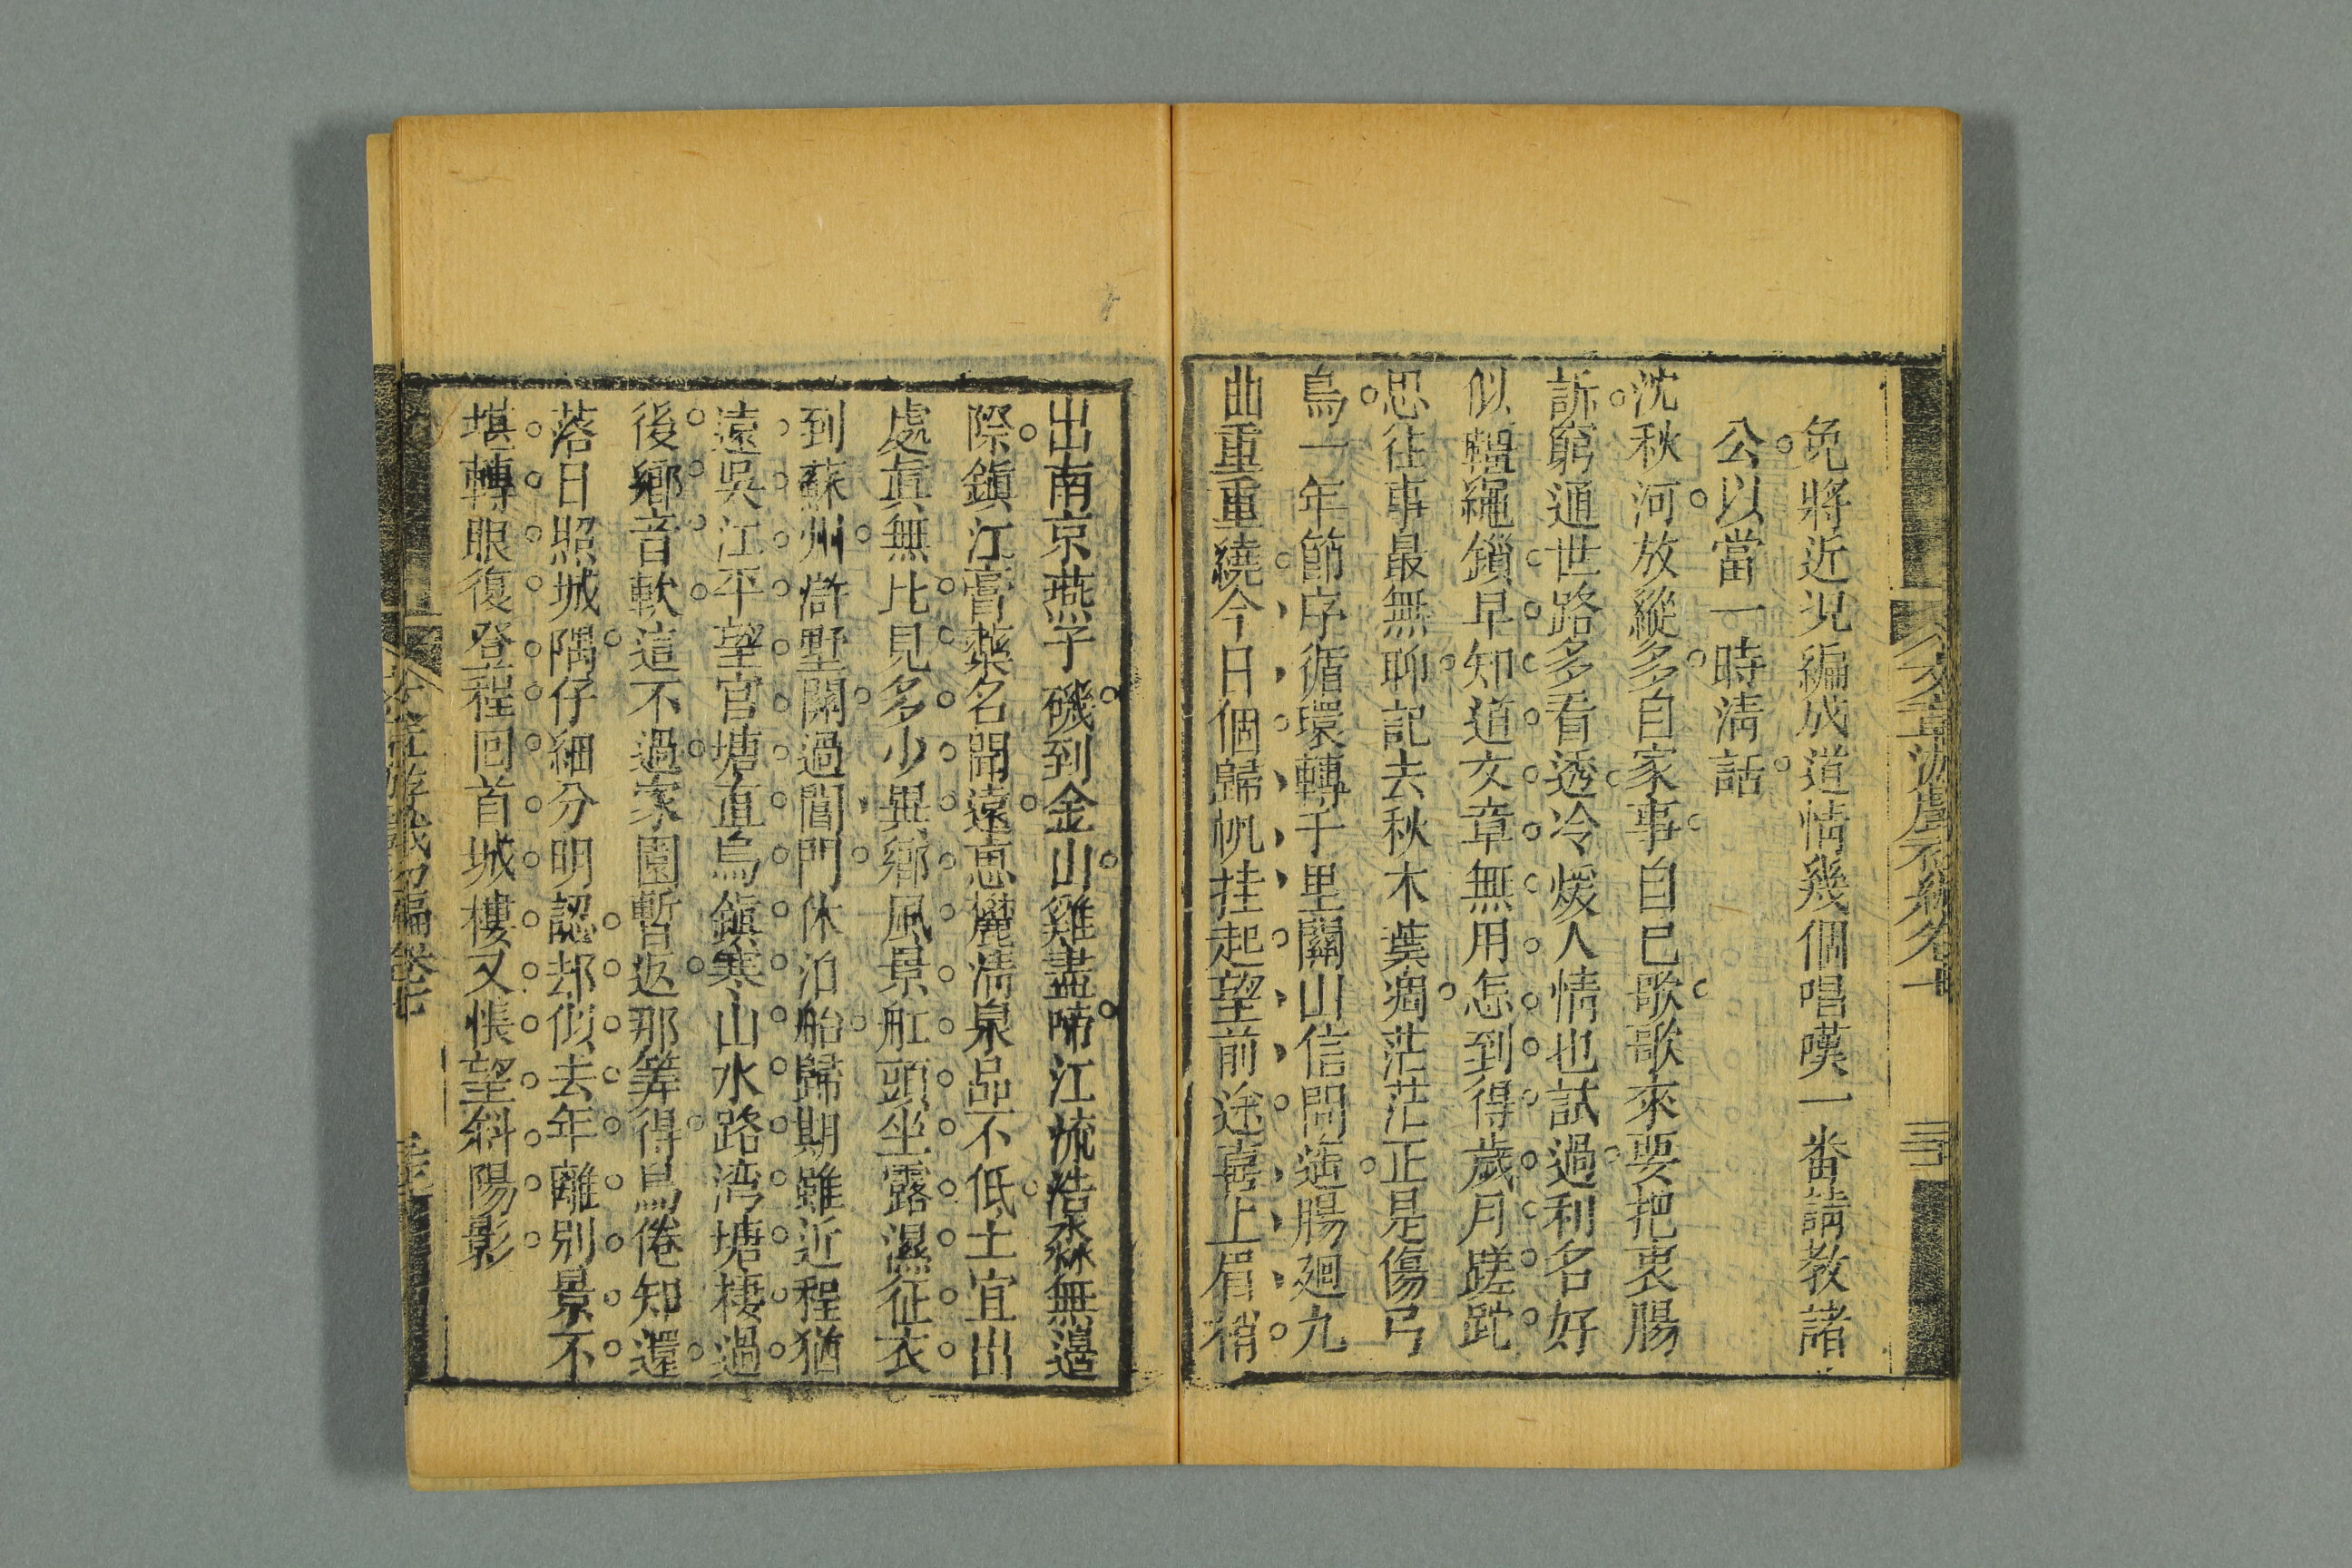 免將近況編成道情幾個唱嘆一番請教諸
公以當一時淸話
沈秋河放縱多自家事自已歌歌來要把衷腸
訴窮通世路多看透冷煖人情也試過利名好
似韁繩鎖早知道文章無用怎到得歲月蹉跎
思往事最無聊記去秋木葉凋茫茫正是傷弓
鳥一年節序循環轉千里關山信問遙腸廻九
曲重重繞今日個歸帆挂起望前途喜上眉稍
出南京燕子磯到金山雞盡啼江流浩淼無邉
際鎭江膏藥名聞遠惠麓淸泉品不低土宜出
處眞無比見多少異鄉風景舡頭坐露濕征衣
到蘇州滸墅關過閶門休泊船歸期雖近程猶
遠吳江平望官塘直烏鎭寒山水路湾塘棲過
後鄉音軟這不過家園暫返那筭得鳥倦知還
落日照城隅仔細分明認却似去年離別景不
堪轉眼復登程回首城樓又悵望斜陽影